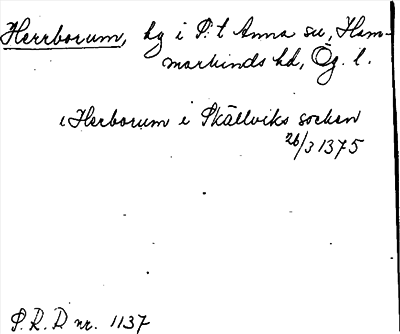 Herrborum, hg i S:t Anna sn, Ham-
markinds hd, Ög. l.
i Herborum i Skällviks socken
26/3 1375
S.R.D nr. 1137